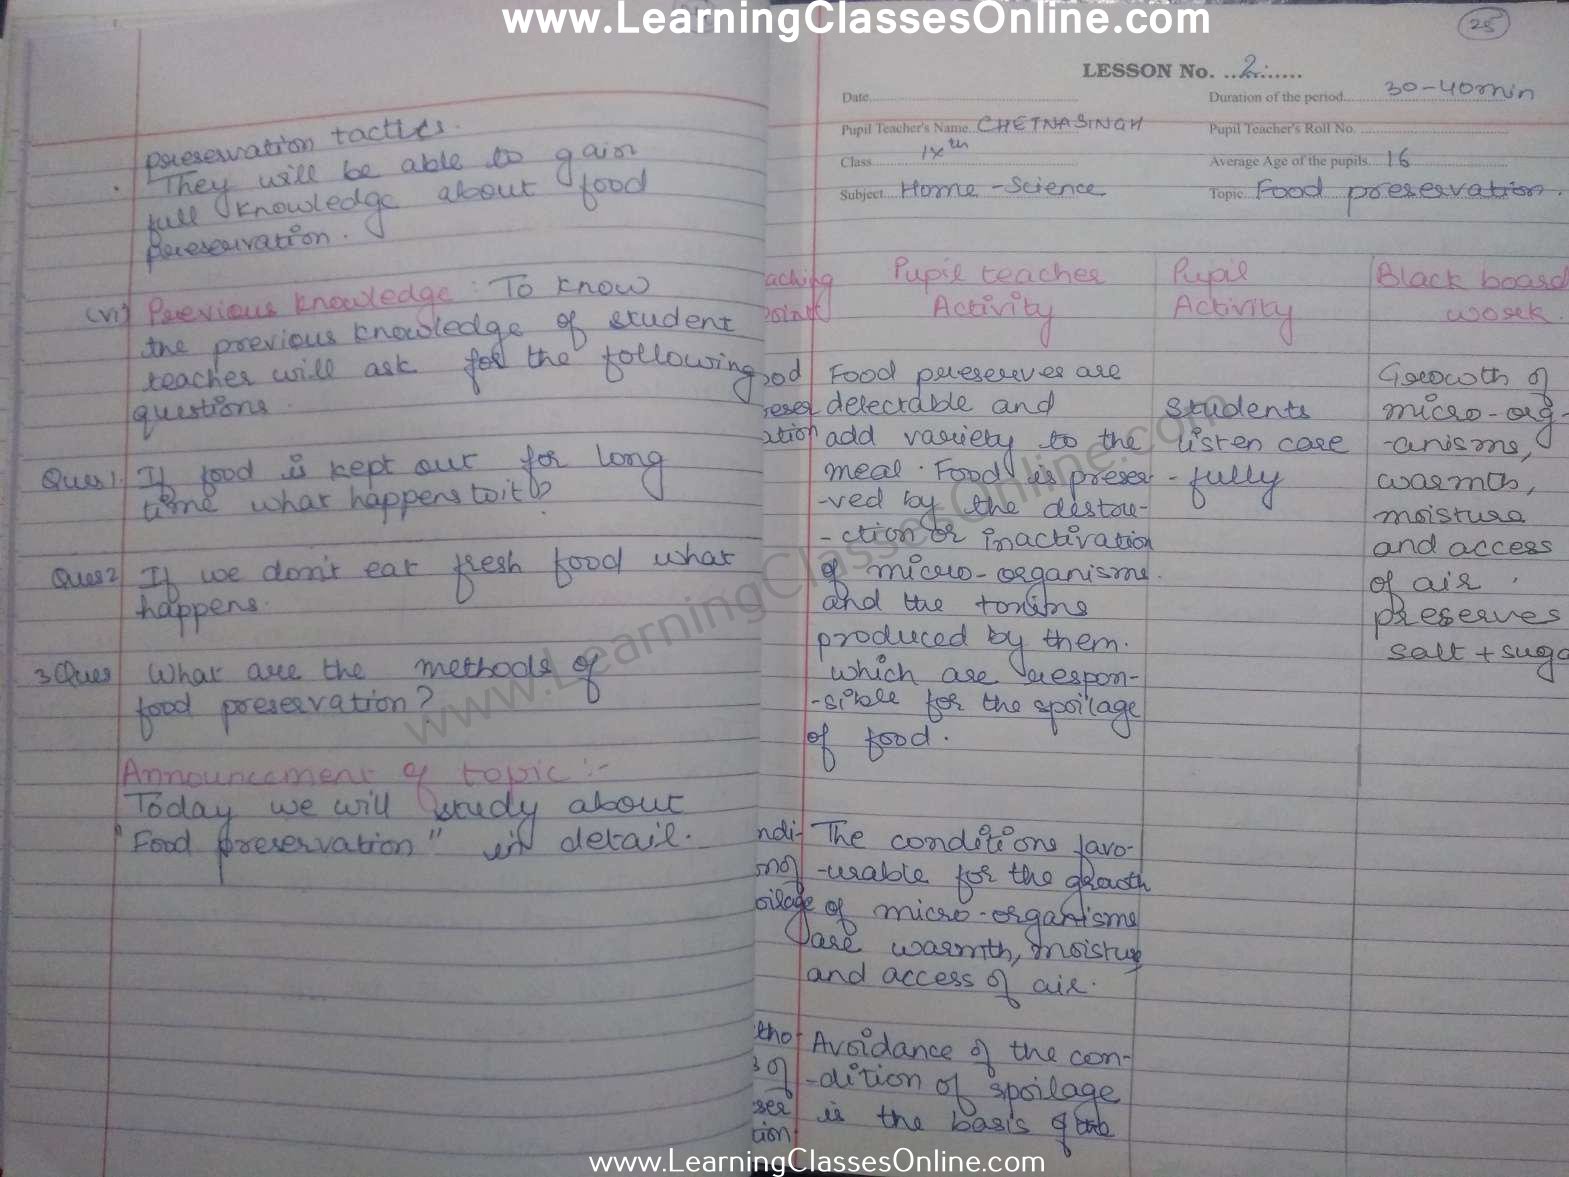 www.LearningClassesOnline.com
preservation tactics.
. They will be able to gain
full knowledge about food
preservation.
(vi) Previous knowledge: To know
the previous knowledge of student
teacher will ask for the following
questions.
Ques 1. If food is kept out for long
time what happens to it?
Ques 2 If we don't eat fresh food what
happens.
3 Ques What are the methods of
food preservation?
Announcement of topic :-
Today we will study about
"Food preservation" in detail.
25
LESSON No. 2
Date
Duration of the period 30-40 min
Pupil Teacher's Name CHETNA SINGH
Pupil Teacher's Roll No.
Class IXth
Average Age of the pupils 16
Subject Home-Science
Topic Food preservation.
aching Pupil teacher Pupil Black board
points Activity Activity work.
ood Food preserves are Growth of
preser detectable and Students micro-org-
ation add variety to the listen care -anisms,
meal. Food is preser -fully warmth,
-ved by the destru- moisture
-ction or inactivation and access
of micro-organisms. of air.
and the toxins preserves
produced by them. salt + suga
which are respon-
-sible for the spoilage
of food.
ndi- The conditions favo-
onof -urable for the growth
oilage of micro-organisms
are warmth, moisture
and access of air.
tho Avoidance of the con-
s of -dition of spoilage
ser is the basis of the
tion
www.LearningClassesOnline.com
www.LearningClassesOnline.com